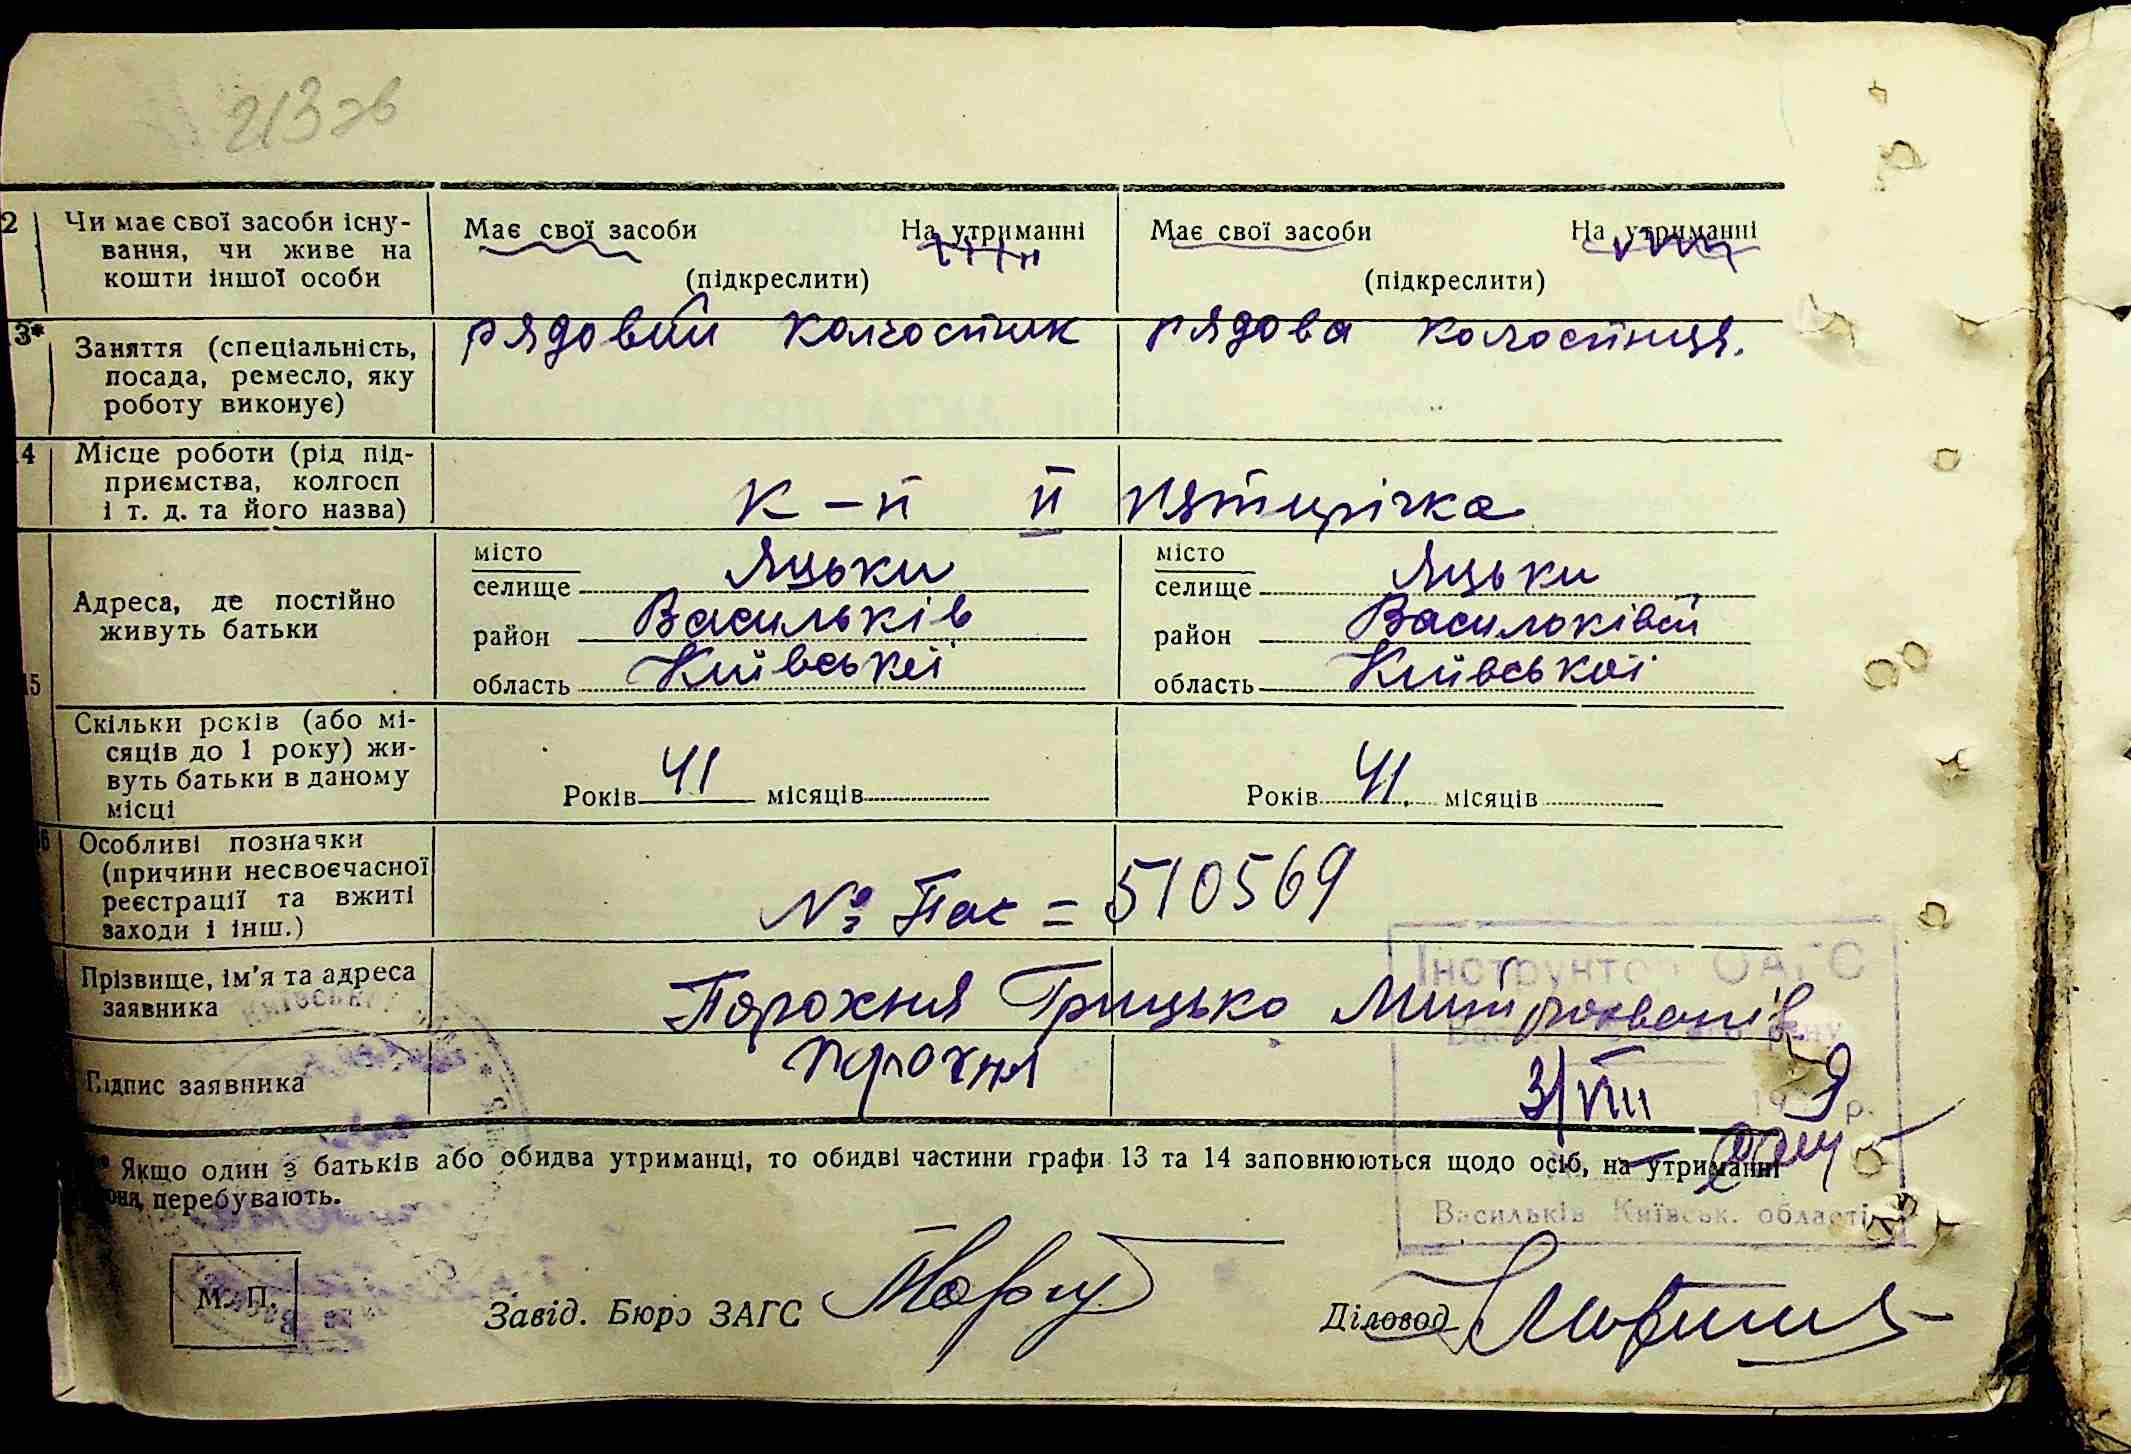 213 зв
2 Чи має свої засоби існу-
вання, чи живе на
кошти іншої особи
Має свої засоби На утриманні Має свої засоби На утриманні
(підкреслити) (підкреслити)
3* Заняття (спеціальність,
посада, ремесло, яку
роботу виконує)
рядовий колгостник рядова колгостниця.
14 Місце роботи (рід під-
приємства, колгосп
і т. д. та його назва)
к-п II пятирічка
15 Адреса, де постійно
живуть батьки
місто
селище Яцьки
район Васильків
область Київської
місто
селище Яцьки
район Васильківсй
область Київської
Скільки років (або мі-
сяців до 1 року) жи-
вуть батьки в даному
місці
Років 41 місяців Років 41. місяців
6 Особливі позначки
(причини несвоєчасної
реєстрації та вжиті
заходи і інш.)
№ Пас = 510569
Прізвище, ім'я та адреса
заявника
Порохня Грицько Митрованів
Підпис заявника
порохня
Інструнтор ОАГС
3/VIII 9 р.
* Якщо один з батьків або обидва утриманці, то обидві частини графи 13 та 14 заповнюються щодо осіб, на утриманні
перебувають.
Васильків Київськ. області
М. П.
Завід. Бюро ЗАГС
Діловод